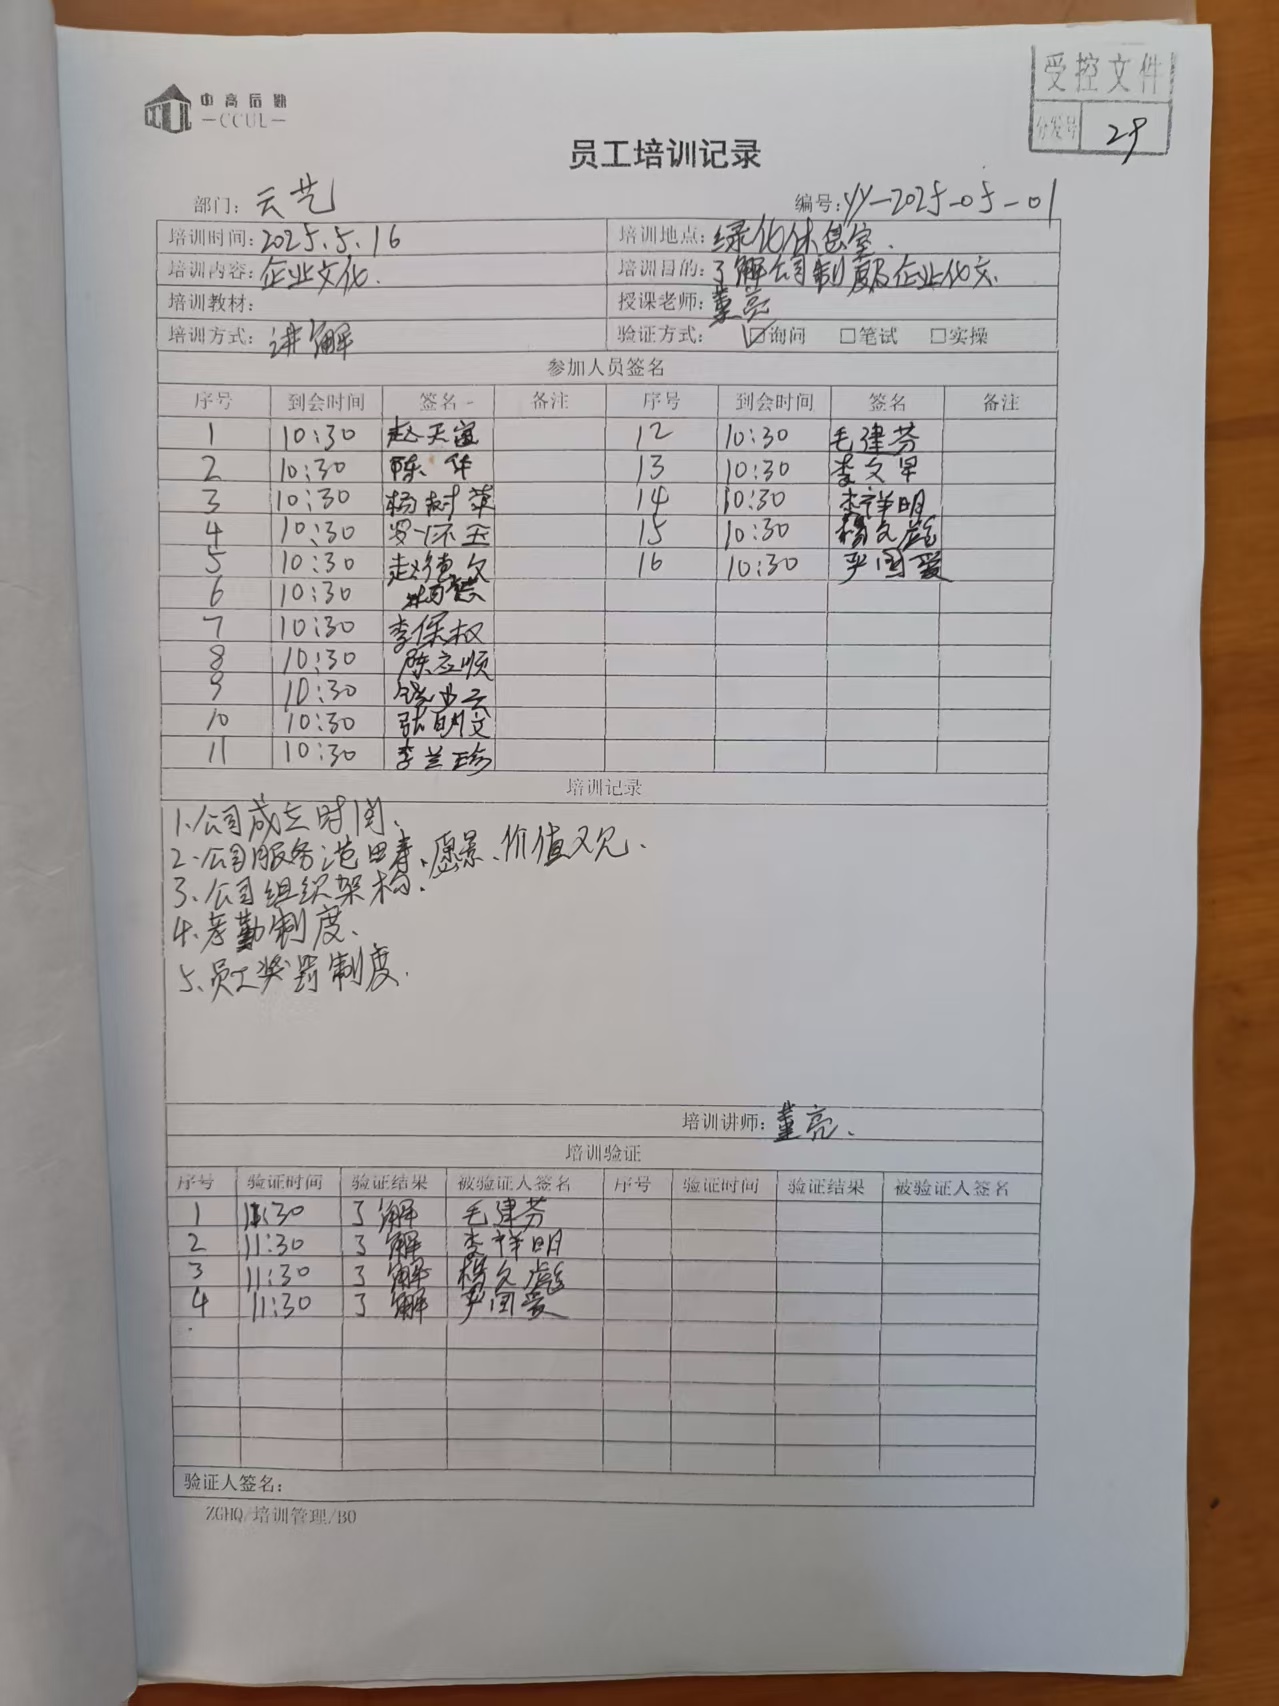 中高后勤
—CCUL—
受控文件
分发号 29
员工培训记录
部门：云艺 编号：YY-2025-05-01
培训时间：2025.5.16 培训地点：绿化休息室.
培训内容：企业文化. 培训目的：了解公司制度及企业化文.
培训教材： 授课老师：董亮
培训方式：讲解 验证方式：☑询问 □笔试 □实操
参加人员签名
序号 到会时间 签名 备注 序号 到会时间 签名 备注
1 10:30 赵天宣 12 10:30 毛建芬
2 10:30 陈华 13 10:30 李文早
3 10:30 杨树萍 14 10:30 李祥明
4 10:30 罗怀玉 15 10:30 杨文彪
5 10:30 赵德文 16 10:30 尹国爱
6 10:30
7 10:30 李保权
8 10:30 陈应顺
9 10:30
10 10:30 张明文
11 10:30 李兰珍
培训记录
1.公司成立时间、
2.公司服务范畴、愿景、价值观.
3.公司组织架构.
4.考勤制度、
5.员工奖罚制度.
培训讲师：董亮.
培训验证
序号 验证时间 验证结果 被验证人签名 序号 验证时间 验证结果 被验证人签名
1 11:30 了解 毛建芬
2 11:30 了解 李祥明
3 11:30 了解 杨文彪
4 11:30 了解 尹国爱
验证人签名：
ZGHQ/培训管理/B0